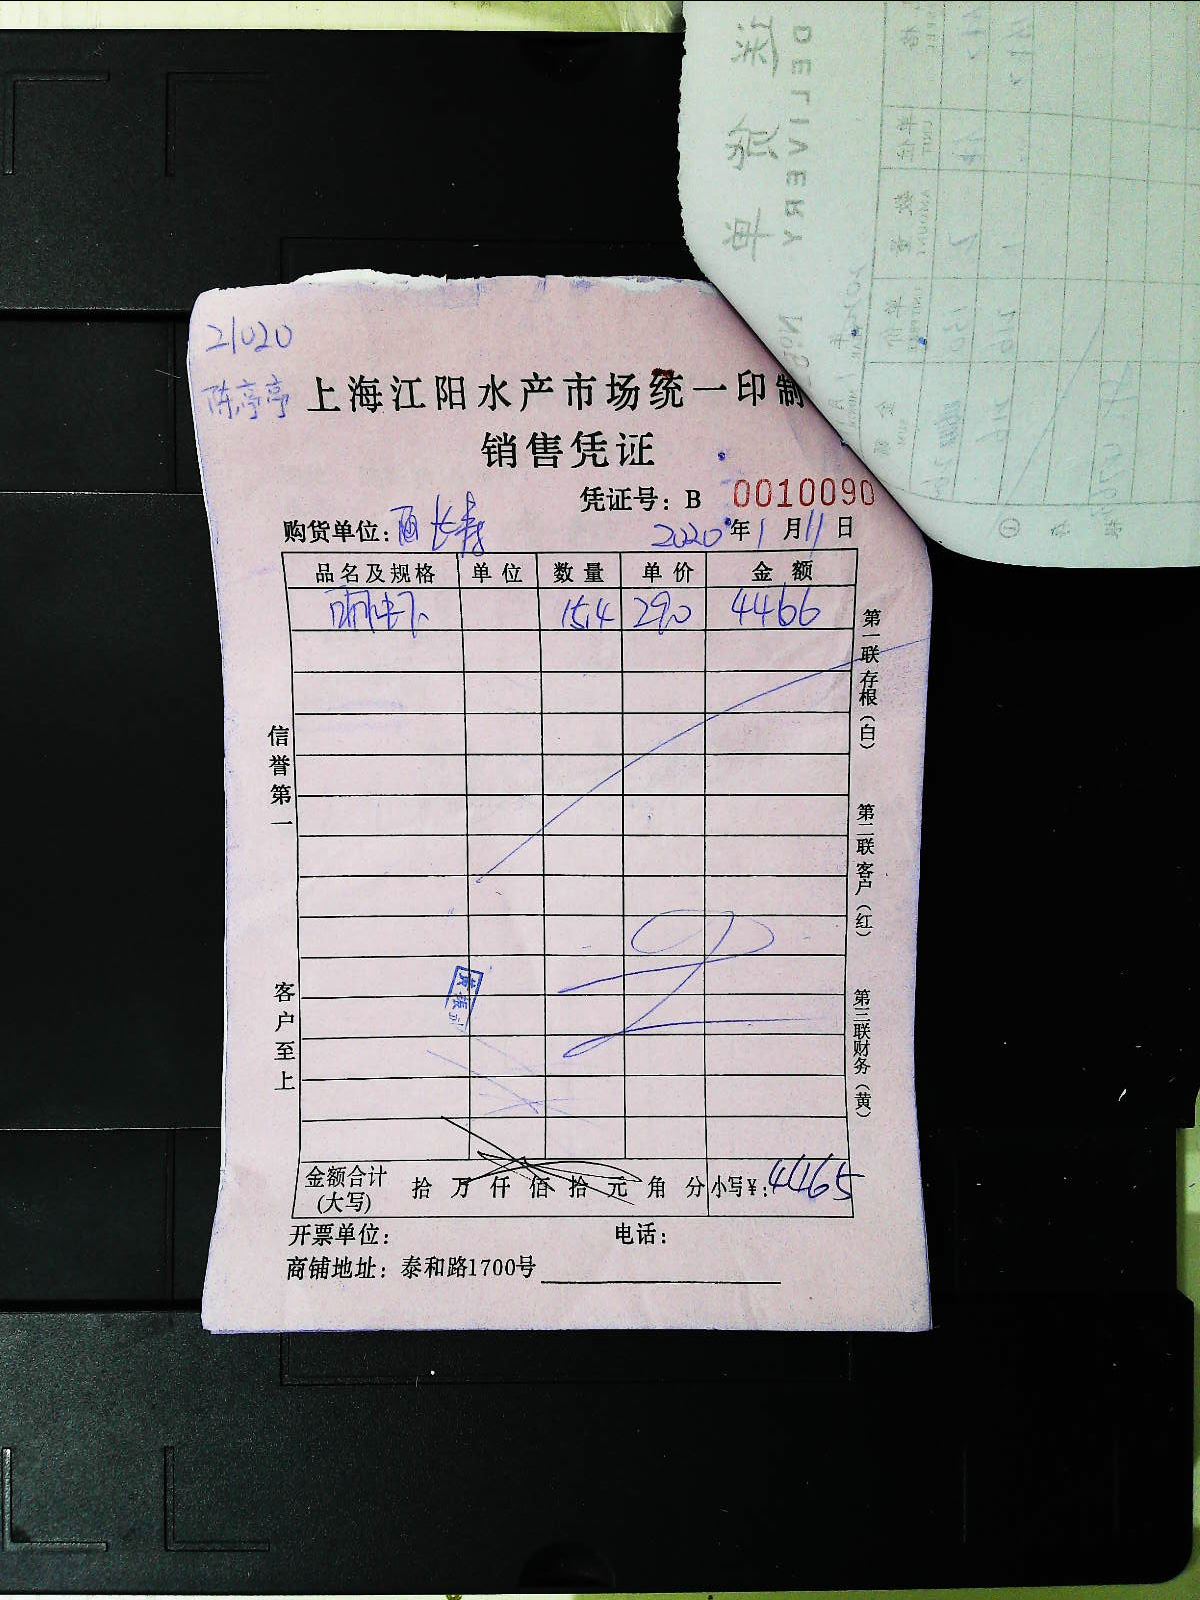 21020
陈亭亭
上海江阳水产市场统一印制
销售凭证
凭证号: B 0010090
购货单位: 西长寿 2020年1月11日
品名及规格 单位 数量 单价 金额
15.4 290 4466
信誉第一
客户至上
第一联存根(白)
第二联客户(红)
第三联财务(黄)
金额合计(大写) 拾 万 仟 佰 拾 元 角 分 小写¥: 4465
开票单位: 电话:
商铺地址: 泰和路1700号
送货单
DELIVERY